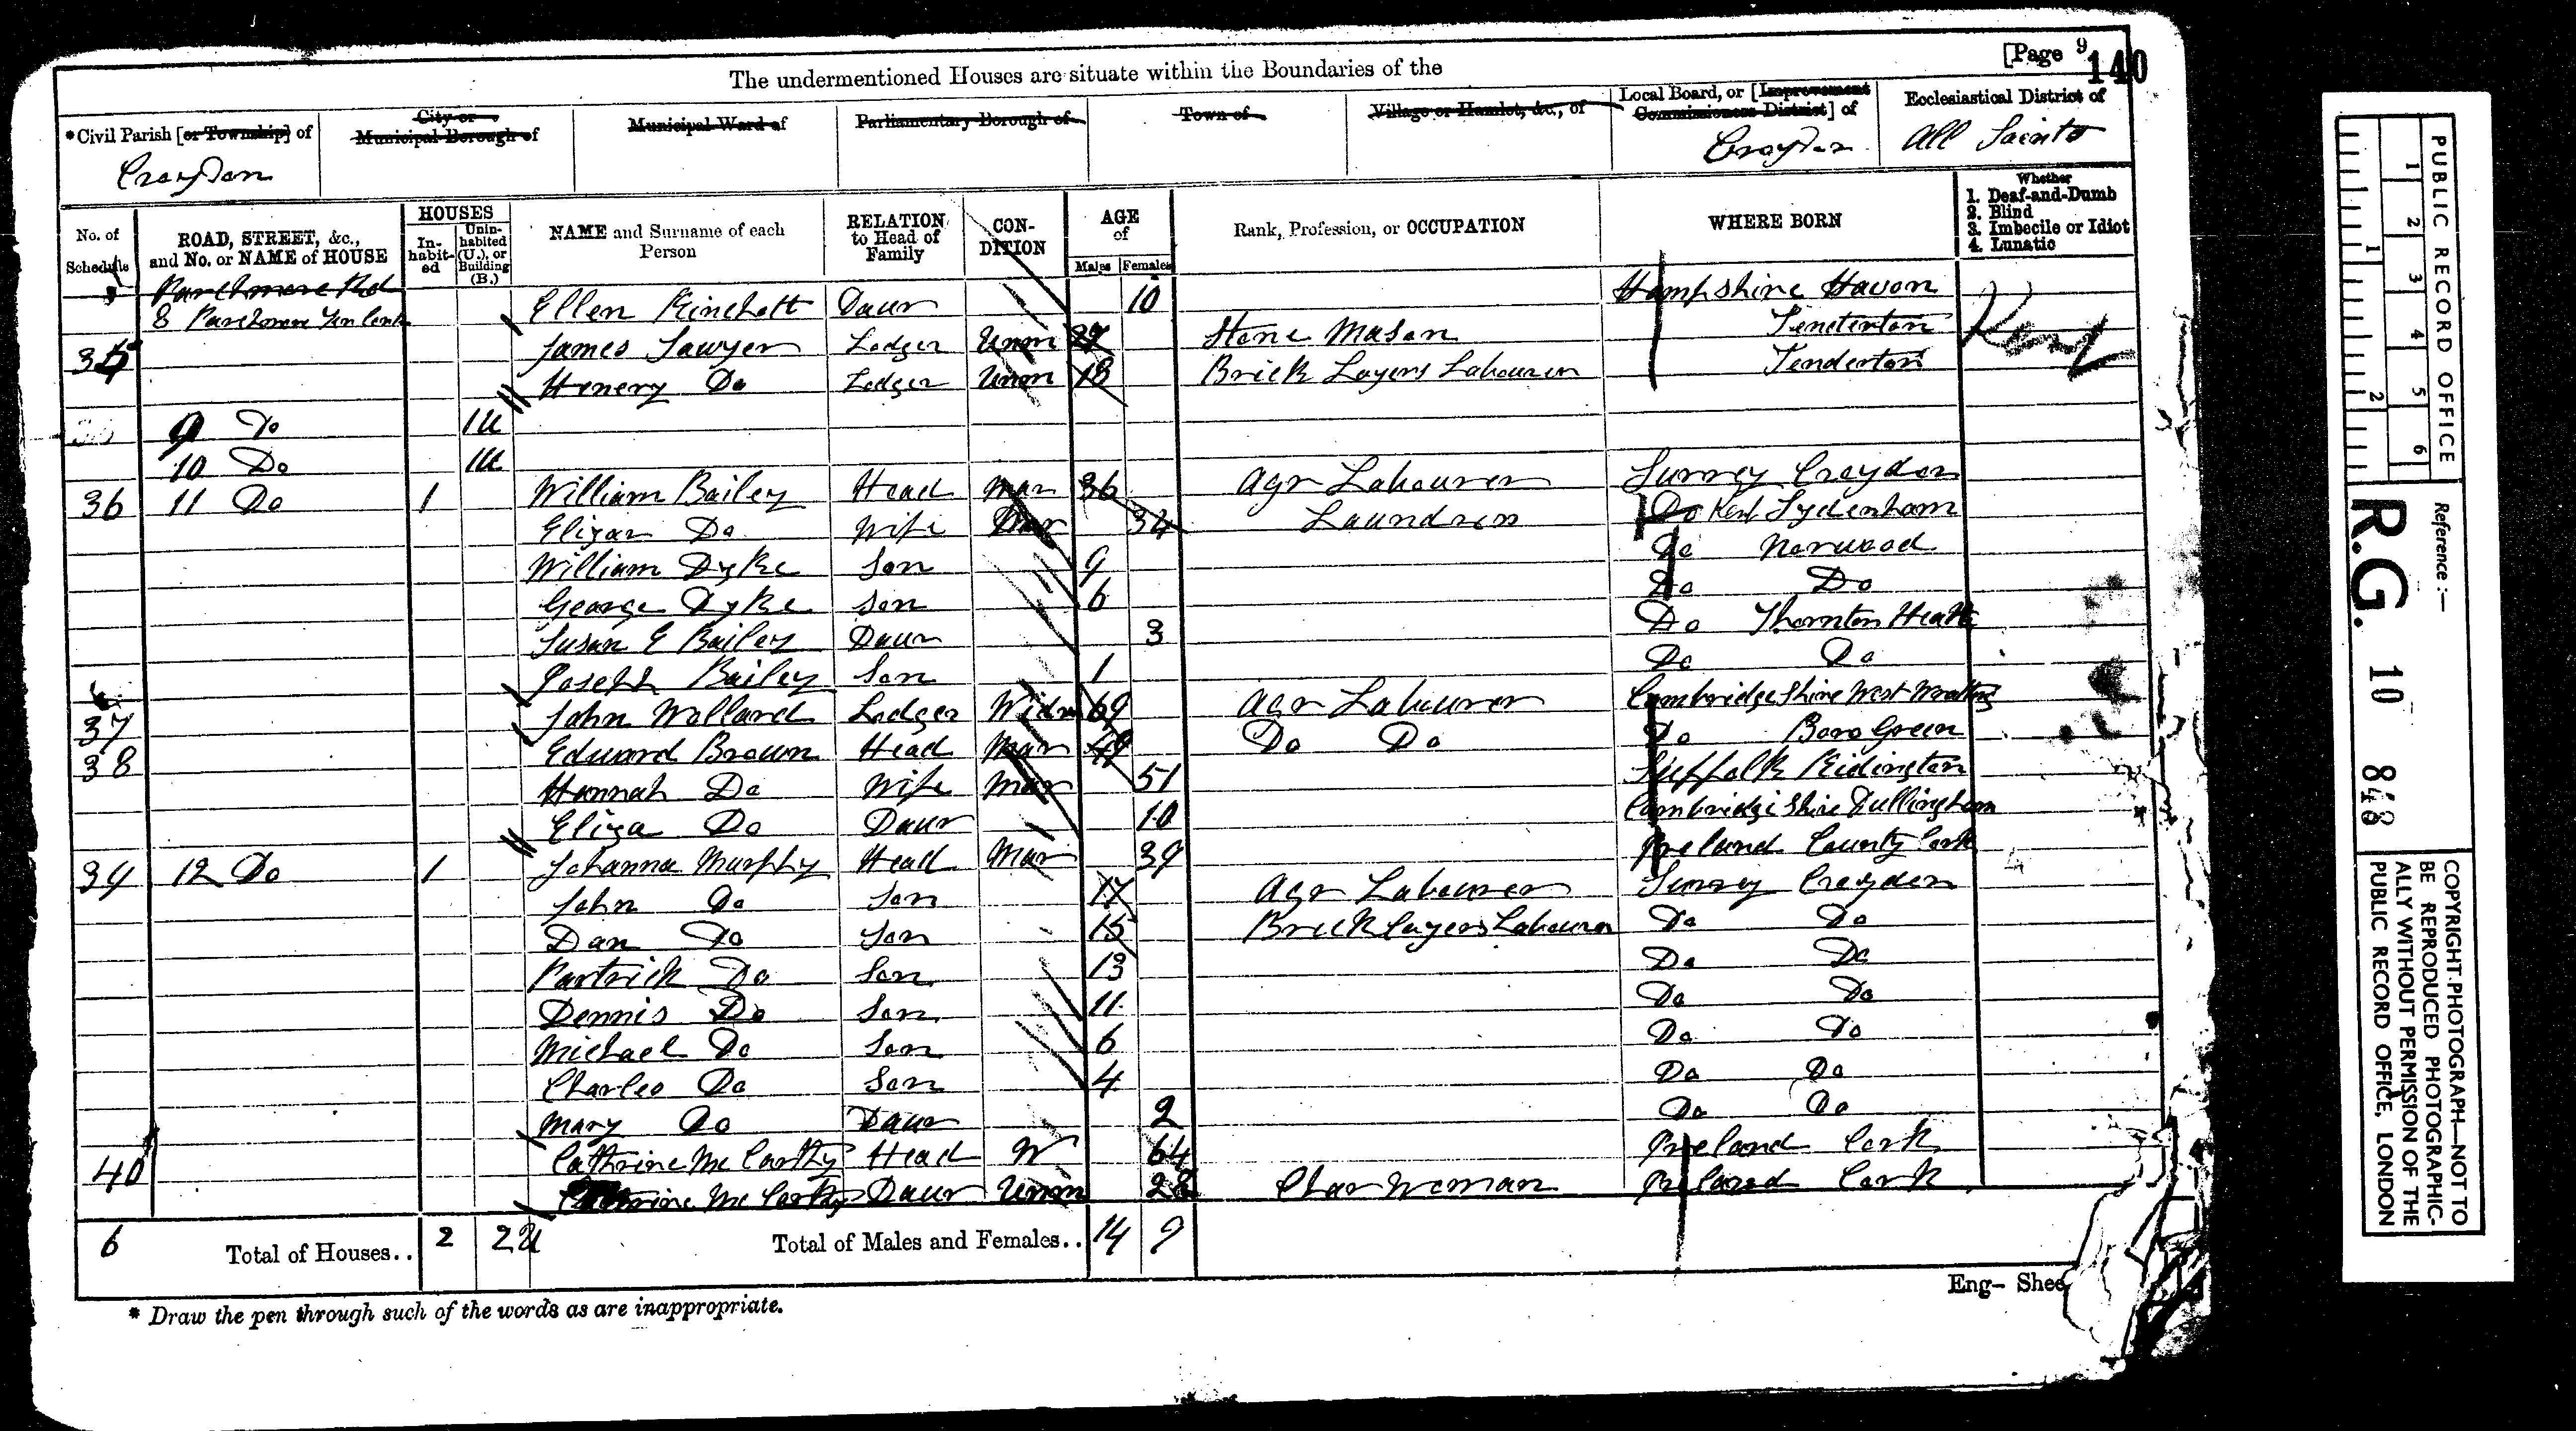 [Page 9
140
The undermentioned Houses are situate within the Boundaries of the
*Civil Parish [or Township] of
City or Municipal Borough of
Municipal Ward of
Parliamentary Borough of
Town of
Village or Hamlet, &c., of
Local Board, or [Improvement Commissioners District] of
Ecclesiastical District of
Croydon
Croydon
All Saints
No. of Schedule
ROAD, STREET, &c., and No. or NAME of HOUSE
HOUSES
In-habit-ed
Unin-habited (U.), or Building (B.)
NAME and Surname of each Person
RELATION to Head of Family
CON-DITION
AGE of
Males Females
Rank, Profession, or OCCUPATION
WHERE BORN
Whether
1. Deaf-and-Dumb
2. Blind
3. Imbecile or Idiot
4. Lunatic
Parchmore Rd
8 Parchmore Ellen Daur 10 Hampshire Havon
35 James Sawyer Lodger Unm 27 Stone Mason Tenterton Kent
Henery Do Lodger Unm 18 Brick Layers Labourer Tenderton
9 Do 1U
10 Do 1U
36 11 Do 1 William Bailey Head Mar 36 Agr Labourer Surrey Croydon
Elizar Do Wife Mar 34 Laundress Do Kent Sydenham
William Dyke Son 9 Do Norwood
George Dyke Son 6 Do Do
Susan E Bailey Daur 3 Do Thornton Heath
Joseph Bailey Son 1 Do Do
37 John Wollard Lodger Widr 69 Agr Labourer Cambridge Shire West Wratting
38 Edward Brown Head Mar 49 Do Do Do Boro Green
Hannah Do Wife Mar 51 Suffolk Kidington
Eliza Do Daur 10 Cambridge Shire Dullingham
39 12 Do 1 Johanna Murphy Head Mar 39 Ireland County Cork
John Do Son 17 Agr Labourer Surrey Croydon
Dan Do Son 15 Brick layers Labourer Do Do
Partrick Do Son 13 Do Do
Dennis Do Son 11 Do Do
Michael Do Son 6 Do Do
Charles Do Son 4 Do Do
Mary Do Daur 2 Do Do
40 Cathrine Mc Carthy Head W 64 Ireland Cork
Cathrine Mc Carthy Daur Unm 28 Char Woman Ireland Cork
6 Total of Houses.. 2 2U Total of Males and Females.. 14 9
Eng- Shee
* Draw the pen through such of the words as are inappropriate.
PUBLIC RECORD OFFICE
1 2 3 4 5 6
1 2
Reference :—
R.G. 10 848
COPYRIGHT PHOTOGRAPH—NOT TO
BE REPRODUCED PHOTOGRAPHIC-
ALLY WITHOUT PERMISSION OF THE
PUBLIC RECORD OFFICE, LONDON